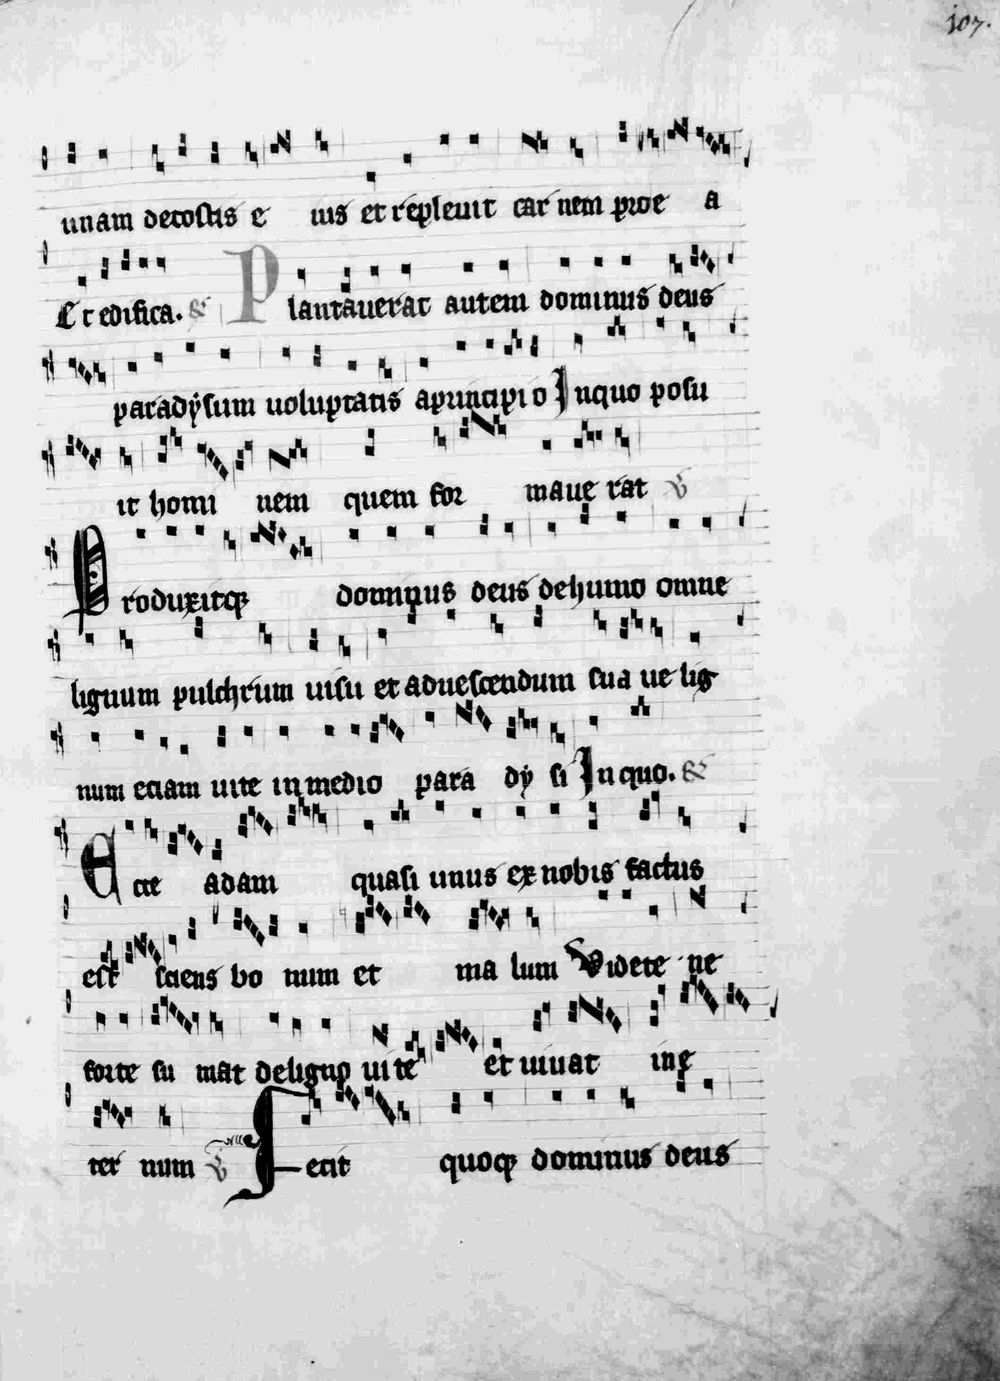 107.
unam decostis e ius et repleuit car nem proe a
Et edifica. R Plantauerat autem dominus deus
paradysum uoluptatis aprincipio Inquo posu
it homi nem quem for maue rat V
Produxitq dominus deus dehumo omne
lignum pulchrum uisu et aduescendum sua ue lig
num eciam uite in medio para dy si Inquo. R
Ecce adam quasi unus ex nobis factus
est sciens bo num et ma lum Videte ne
forte su mat deligno uite et uiuat ine
ter num V Fecit quoq dominus deus